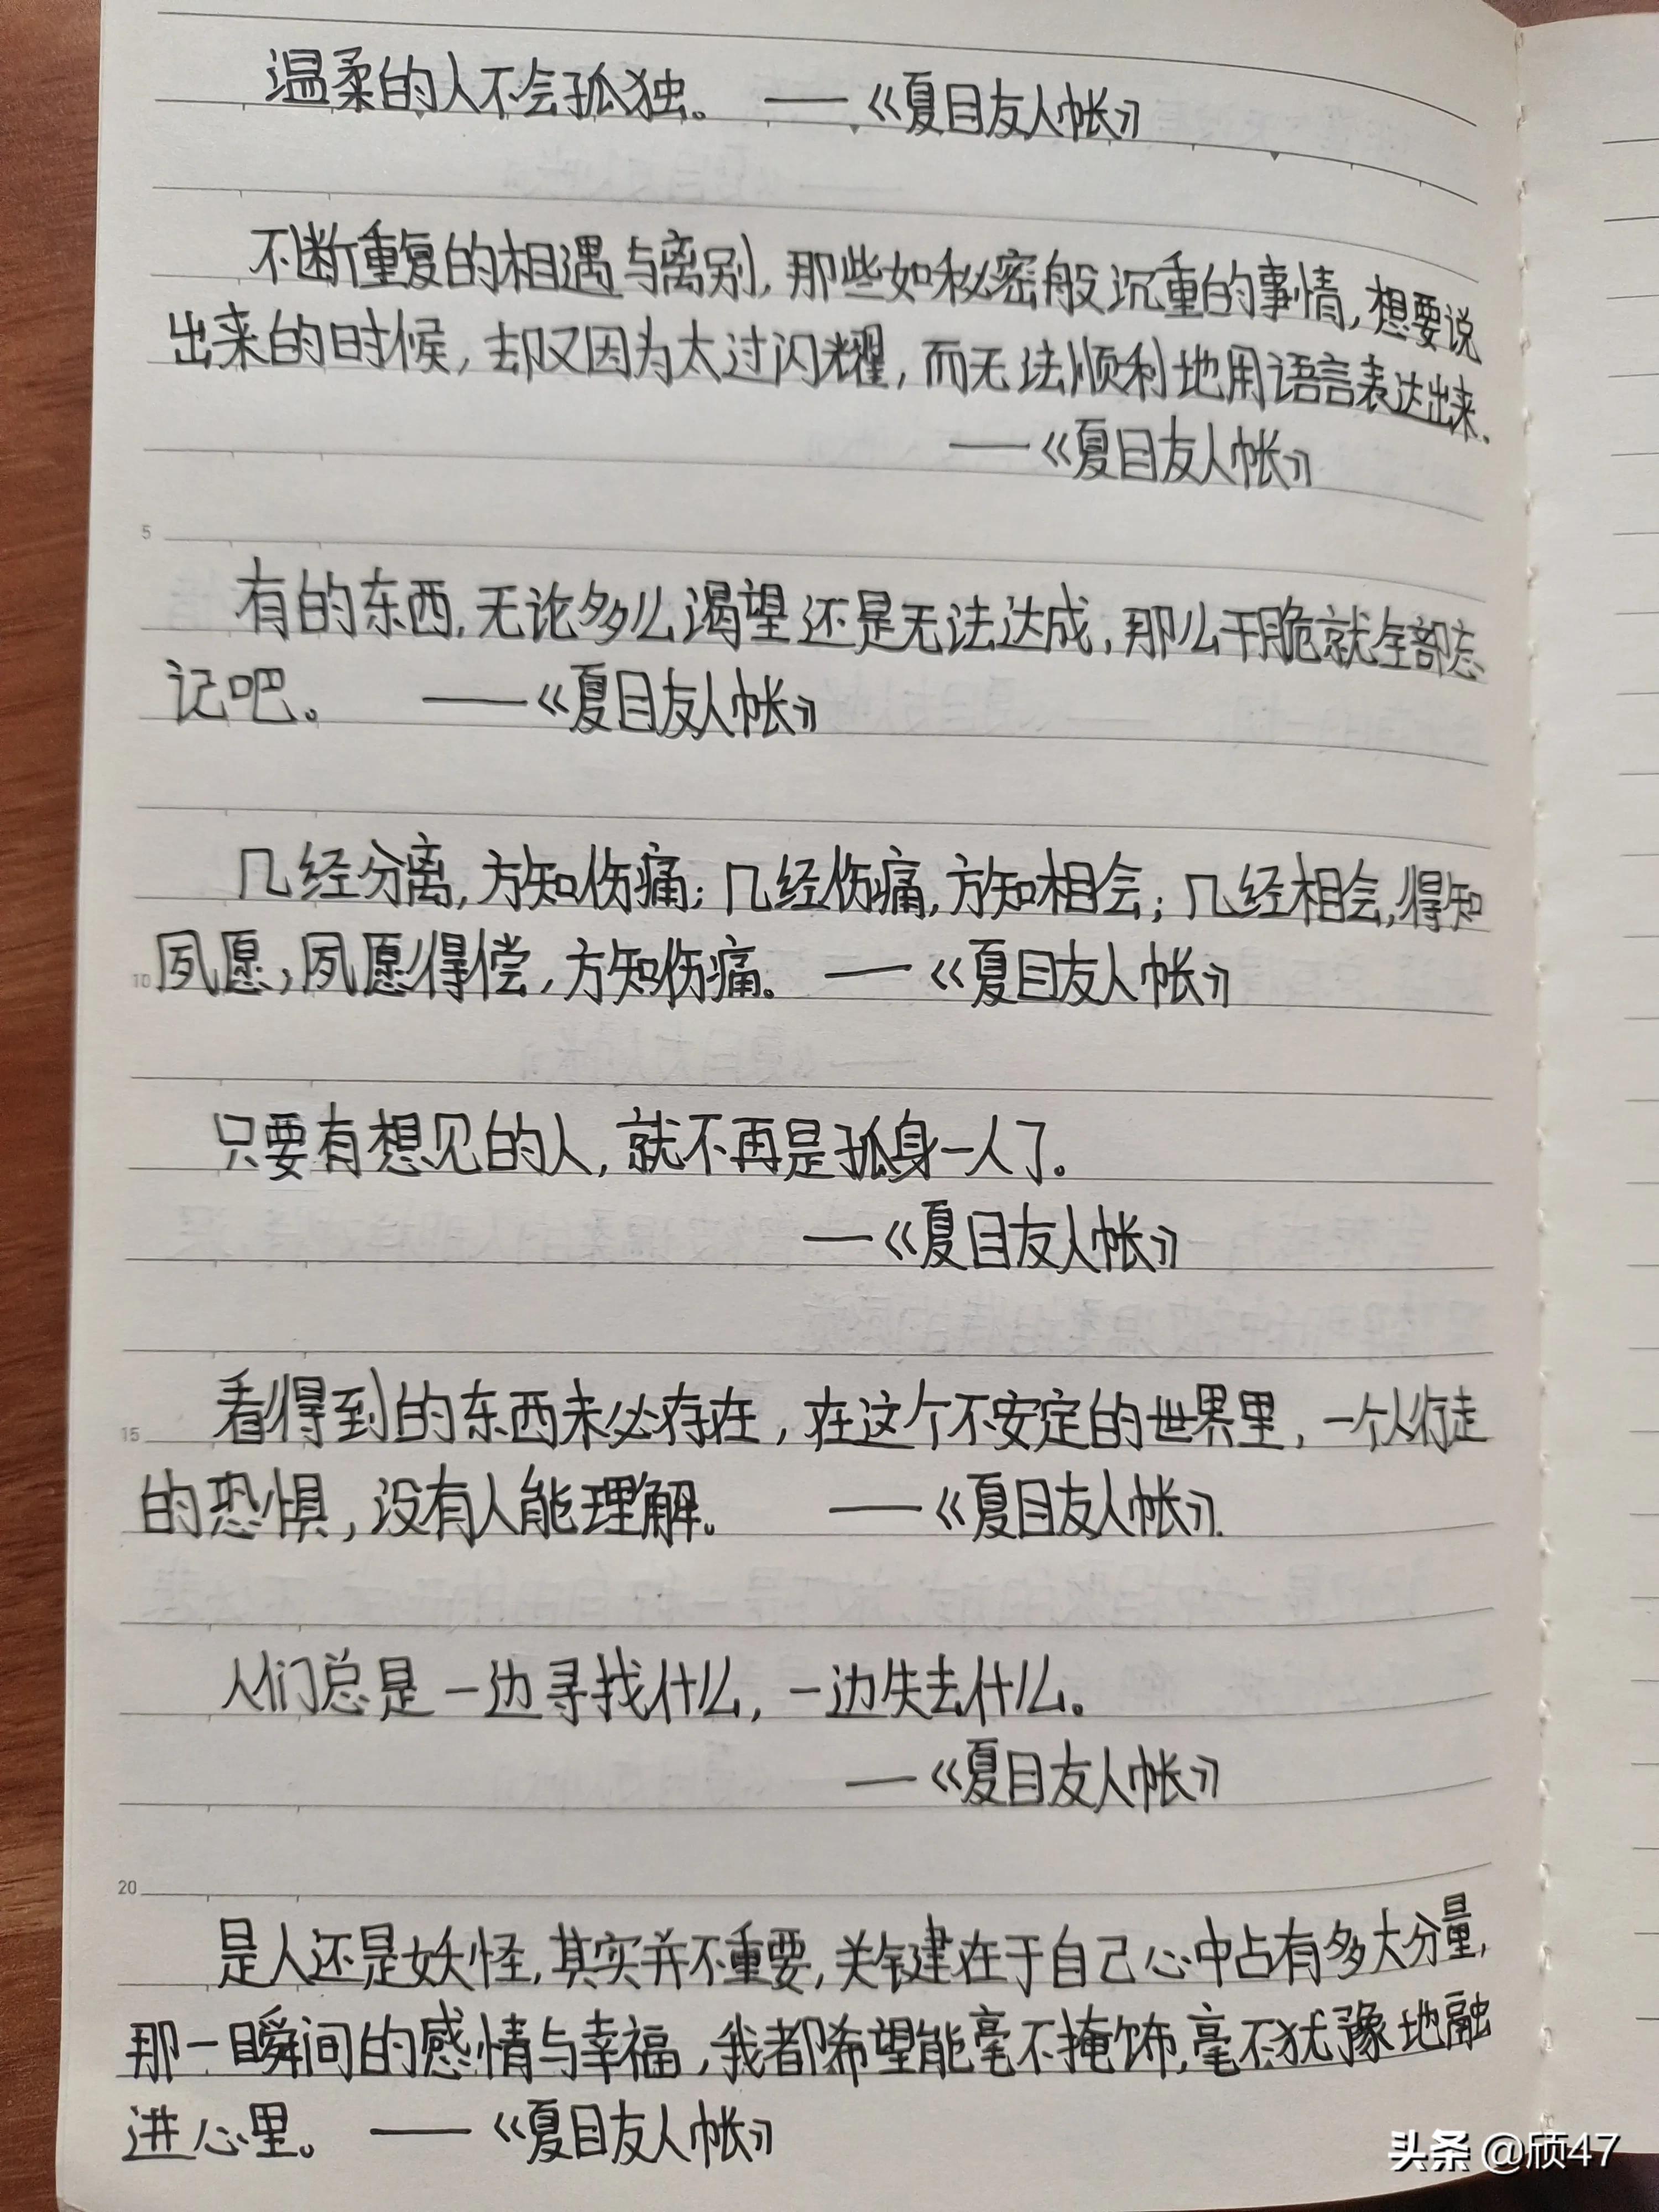 温柔的人不会孤独。 ——《夏目友人帐》
不断重复的相遇与离别,那些如秘密般沉重的事情,想要说
出来的时候,却又因为太过闪耀,而无法顺利地用语言表达出来.
——《夏目友人帐》
5
有的东西,无论多么渴望还是无法达成,那么干脆就全部忘
记吧。 ——《夏目友人帐》
几经分离,方知伤痛;几经伤痛,方知相会;几经相会,得知
10 夙愿;夙愿得偿,方知伤痛。 ——《夏目友人帐》
只要有想见的人,就不再是孤身一人了。
——《夏目友人帐》
15 看得到的东西未必存在,在这个不安定的世界里,一个人行走
的恐惧,没有人能理解。 ——《夏目友人帐》.
人们总是一边寻找什么,一边失去什么。
——《夏目友人帐》
20
是人还是妖怪,其实并不重要,关键在于自己心中占有多大分量,
那一瞬间的感情与幸福,我都希望能毫不掩饰,毫不犹豫地融
进心里。 ——《夏目友人帐》
头条 @颀47